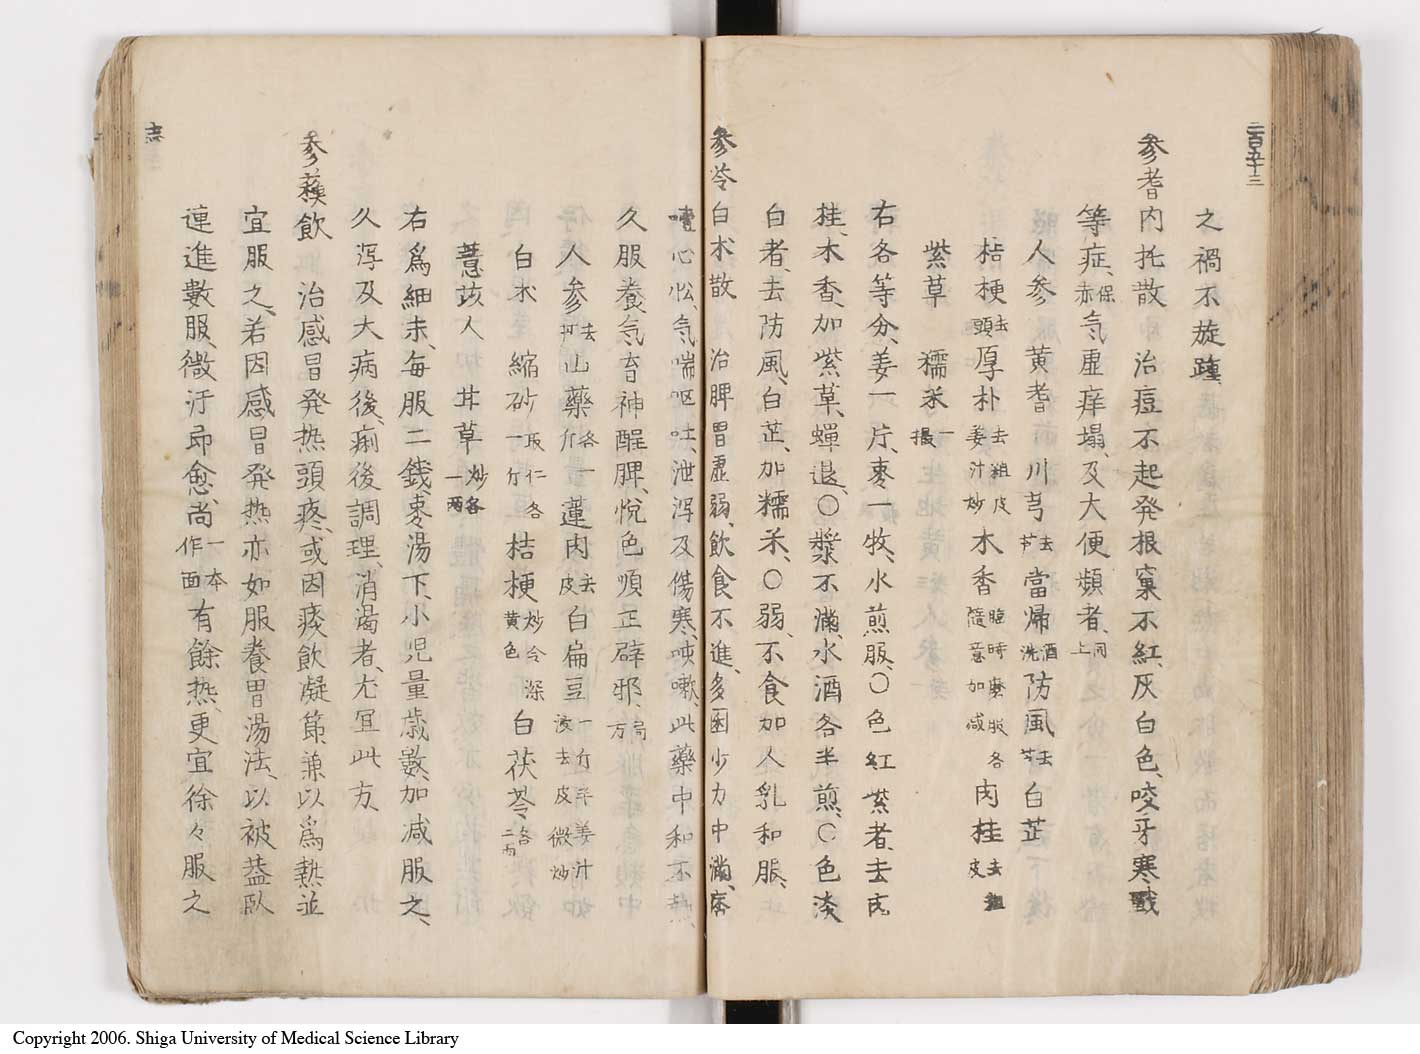 二百五十三
之禍不旋踵、
参耆内托散　治痘不起発根窠不紅、灰白色、咬牙寒戰
等症、保赤 気虚痒塌、及大便頻者、同上
人参　黄耆　川芎去芦 當帰酒洗 防風去芦 白芷
桔梗去頭 厚朴去粗皮姜汁炒 木香臨時磨服各随意加减 肉桂去粗皮
紫草　糯米一撮
右各等分、姜一片、枣一牧、水煎服、〇色紅紫者、去肉
桂、木香、加紫草、蝉退、〇漿不滿、水酒各半煎、〇色淡
白者、去防風、白芷、加糯米、〇弱、不食加人乳和服、
参苓白术散　治脾胃虚弱、飲食不進、多困少力中滿、痞
噎心忪、気喘呕吐、泄泻及傷寒、咳嗽、此薬中和不熱、
久服養気、育神醒脾、悦色順正辟邪、局方
人参去芦 山藥各一斤 蓮肉去皮 白扁豆一斤半姜汁浸去皮微炒
白术　縮砂取仁各一斤 桔梗炒令深黄色 白茯苓各二兩
薏苡人　甘草炒各一兩
右為細末、毎服二錢、枣湯下、小児量歳數、加减服之、
久泻及大病後、痢後調理、消渴者、尤冝此方、
参蘓飲　治感冒発热頭疼、或因痰飲凝節兼以為熱並
宜服之、若因感冒発热亦如服養胃湯法、以被盖臥
連進數服、微汙即愈、尚一本作面 有餘热、更宜徐々服之